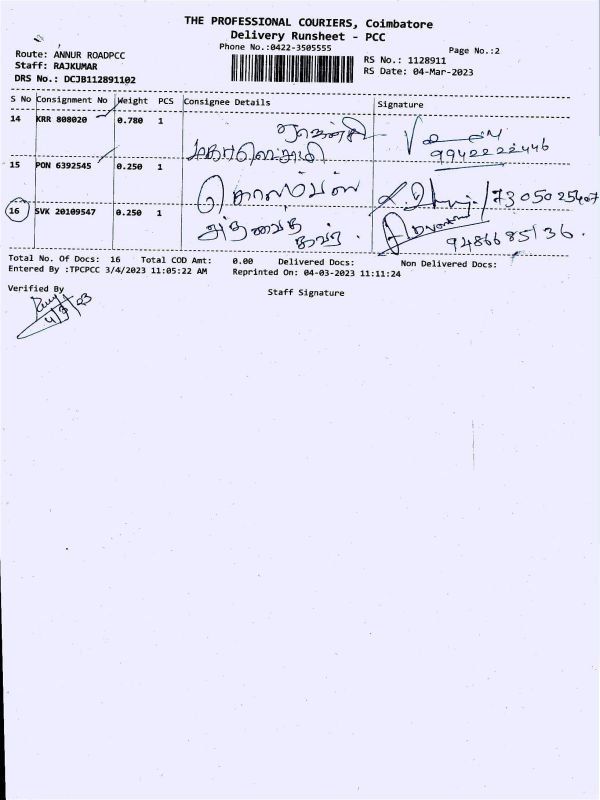 THE PROFESSIONAL COURIERS, Coimbatore
Delivery Runsheet - PCC
Phone No.:0422-3505555
Page No.:2
Route: ANNUR ROADPCC
Staff: RAJKUMAR
DRS No.: DCJB112891102
RS No.: 1128911
RS Date: 04-Mar-2023
S No Consignment No Weight PCS Consignee Details Signature
14 KRR 808020 0.780 1
9942222446
15 PON 6392545 0.250 1
7305025407
16 SVK 20109547 0.250 1
9486685136.
Total No. Of Docs: 16 Total COD Amt: 0.00 Delivered Docs: Non Delivered Docs:
Entered By :TPCPCC 3/4/2023 11:05:22 AM Reprinted On: 04-03-2023 11:11:24
Verified By
Staff Signature
4/3/23